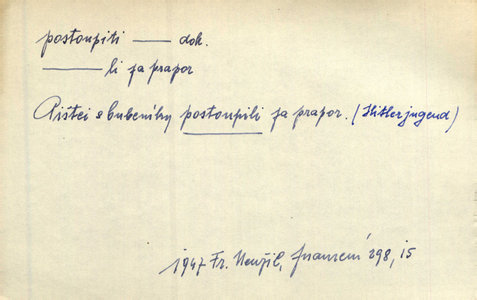 postoupiti —— dok.
—— li za prapor
Pištci s bubeníky postoupili za prapor. (Hitlerjugend)
1947 Fr. Neužil, 298, 15